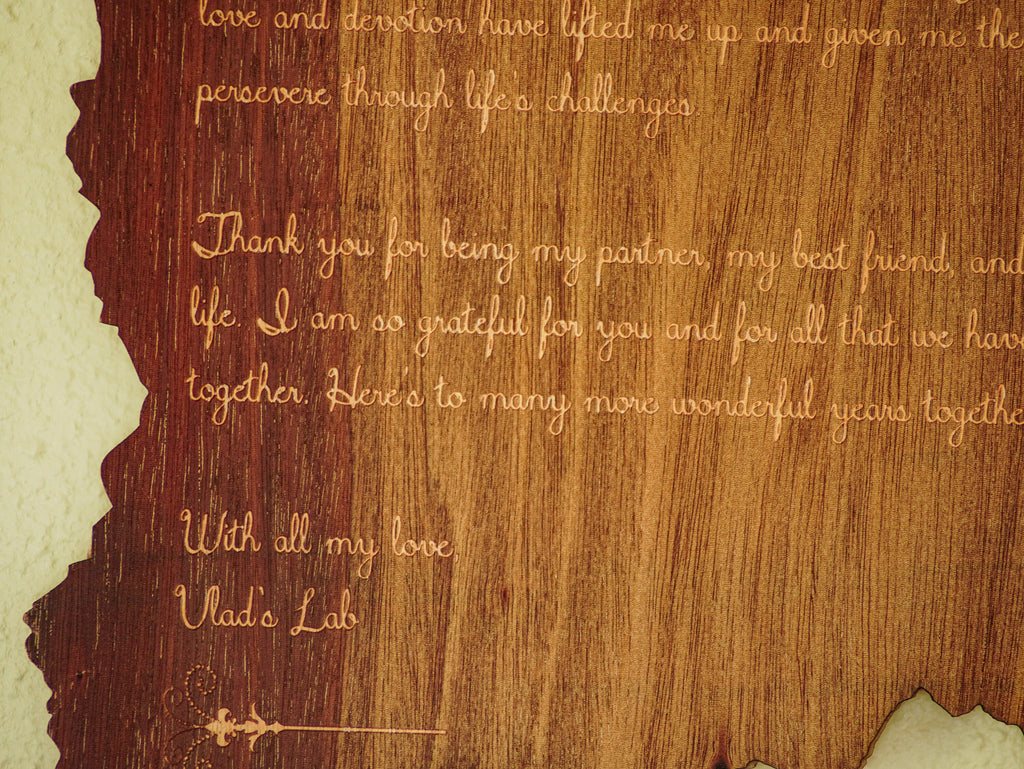 love and devotion have lifted me up and given me the
persevere through life's challenges
Thank you for being my partner, my best friend, and
life. I am so grateful for you and for all that we have
together. Here's to many more wonderful years togethe
With all my love,
Vlad's Lab